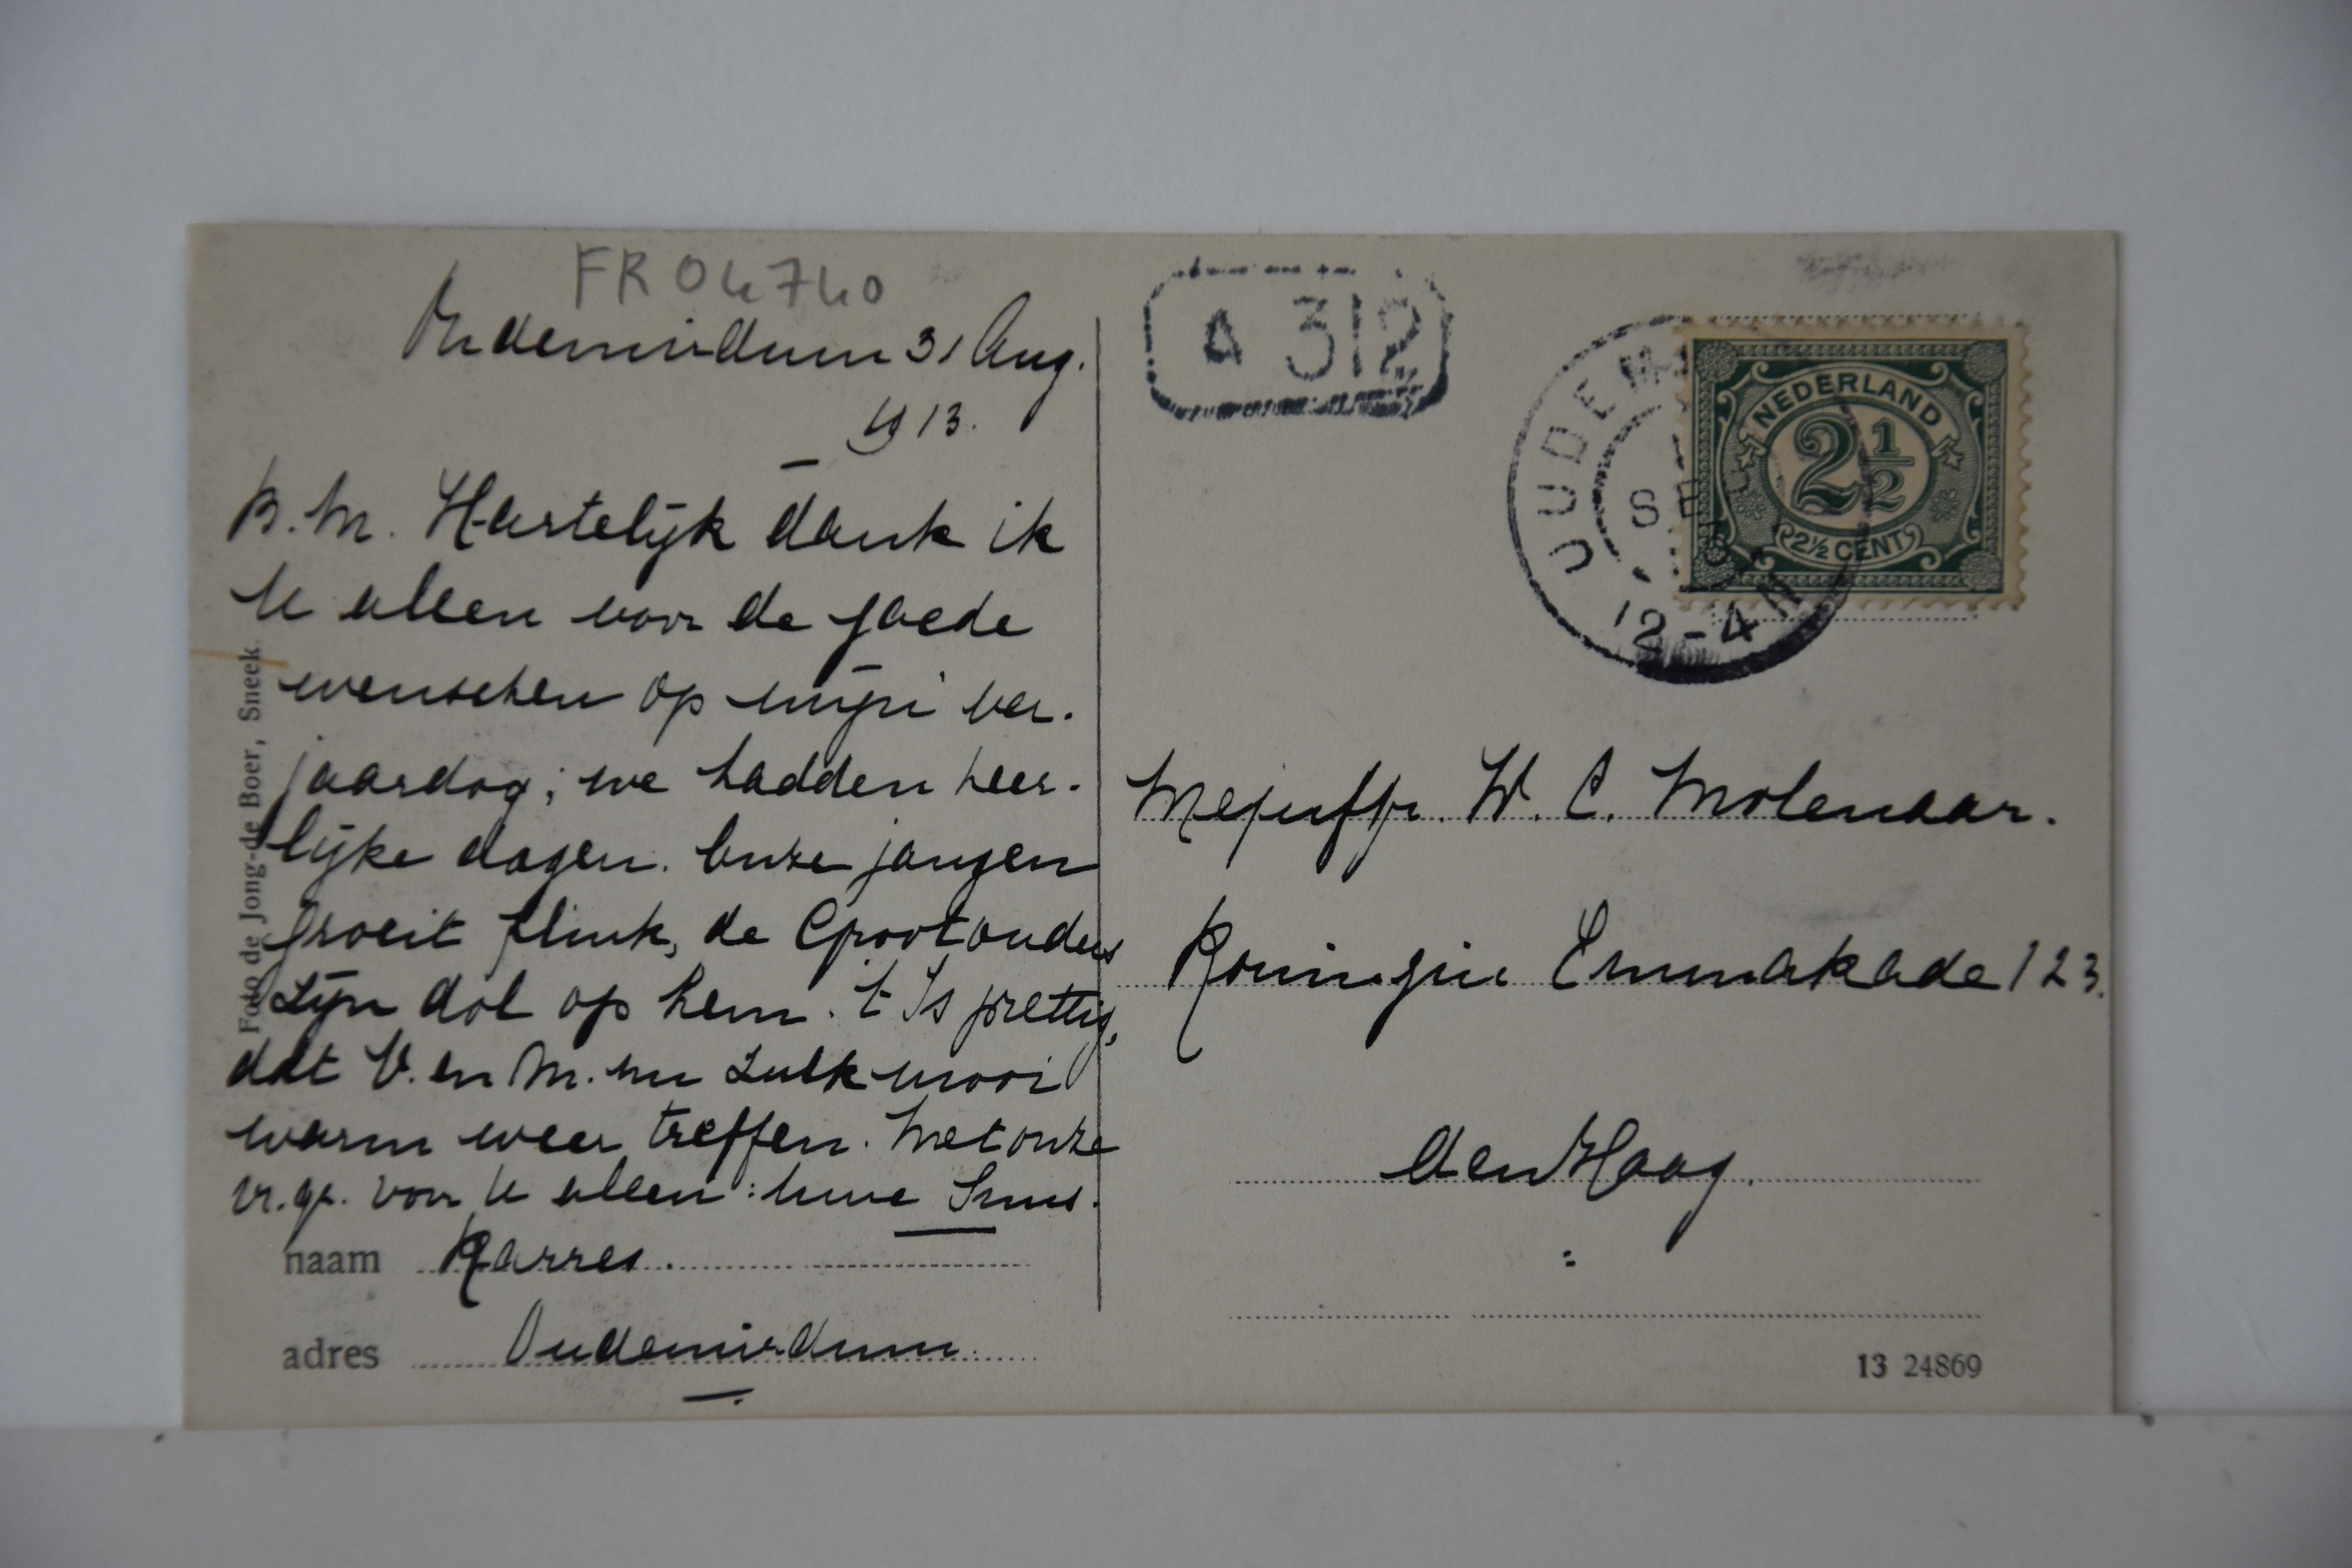 FR04740
Oudemirdum 31 Aug.
1913.
B. M. Hartelijk dank ik
U allen voor de goede
wenschen op mijn ver-
jaardag; we hadden heer-
lijke dagen. Onze jongen
groeit flink, de Grootouders
zijn dol op hem. 't Is prettig,
dat V. en M. nu zulk mooi
warm weer treffen. Met onze
vr. gr. voor U allen: Uwe Suus.
naam Karres.
adres Oudemirdum.
Foto de Jong-de Boer, Sneek.
A 312
OUDEMI
SEP
12-4N
NEDERLAND
2 1/2
2½ CENT
Mejuffr. W. C. Molenaar.
Koningin Emmakade 123.
den Haag.
13 24869